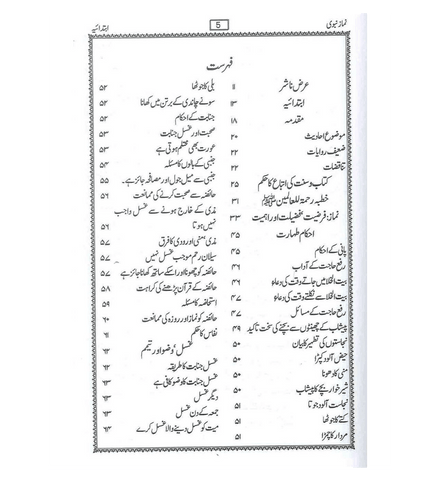 نماز نبوی
5
ابتدائیہ
فہرست
عرض ناشر ۱۱
ابتدائیہ ۱۳
مقدمہ ۱۸
موضوع احادیث ۲۰
ضعیف روایات ۲۲
تناقضات ۲۲
کتاب و سنت کی اتباع کا حکم ۲۵
خطبہ رحمۃ للعالمین ﷺ ۳۱
نماز: فرضیت، فضیلت اور اہمیت ۳۳
احکام طہارت ۴۵
پانی کے احکام ۴۵
رفع حاجت کے آداب ۴۶
بیت الخلا میں جاتے وقت کی دعاء ۴۶
بیت الخلا سے نکلتے وقت کی دعاء ۴۷
رفع حاجت کے مسائل ۴۷
پیشاب کے چھینٹوں سے بچنے کی سخت تاکید ۴۹
نجاستوں کی تطہیر کا بیان ۵۰
حیض آلود کپڑا ۵۰
منی کا دھونا ۵۰
شیر خوار بچے کا پیشاب ۵۰
نجاست آلود جوتا ۵۱
کتے کا جوٹھا ۵۱
مردار کا چمڑا ۵۱
بلی کا جوٹھا ۵۲
سونے چاندی کے برتن میں کھانا ۵۲
جنابت کے احکام ۵۳
صحبت اور غسل جنابت ۵۳
عورت بھی محتلم ہوتی ہے ۵۳
جنبی کے بالوں کا مسئلہ ۵۴
جنبی سے میل جول اور مصافحہ جائز ہے۔ ۵۵
حائضہ سے صحبت کرنے کی ممانعت ۵۶
مذی کے خارج ہونے سے غسل واجب
نہیں ہوتا ۵۶
مذی، منی اور ودی کا فرق ۵۷
سیلان رحم موجب غسل نہیں ۵۷
حائضہ کو چھونا اور اسکے ساتھ کھانا جائز ہے ۵۷
حائضہ کے قرآن پڑھنے کی کراہت ۵۸
استحاضہ کا مسئلہ ۵۹
حائضہ کو نماز اور روزہ کی ممانعت ۶۰
نفاس کا حکم ۶۱
غسل، وضو اور تیمم ۶۲
غسل جنابت کا طریقہ ۶۲
غسل جنابت کا وضو کافی ہے ۶۳
دیگر غسل ۶۳
جمعہ کے دن غسل ۶۳
میت کو غسل دینے والا غسل کرے ۶۳